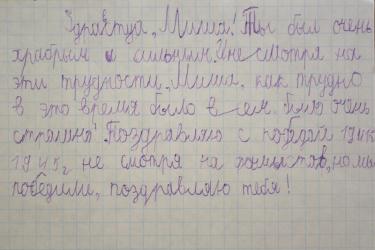 Здраствуа, Миша! Ты был очень
храбрым и сильным. И не смотря на
эти трудности. Миша, как трудно
в это время было всем было очень
страшна! Поздравляю с победай
1945г не смотря на фашыстов, но мы
победили, поздравляю тебя!